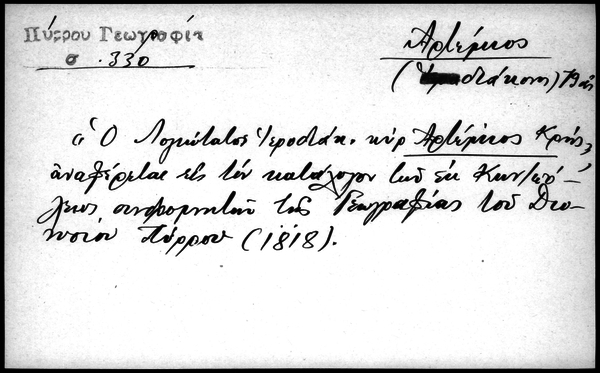 Πύρρου Γεωγραφία
σ. 330
Ἀρτέμιος
(Ἱεροδιάκονος)
«Ὁ Λογιώτατος Ἱεροδιάκ. κὺρ Ἀρτέμιος Κρής,»
ἀναφέρεται εἰς τὸν κατάλογον τῶν ἐκ Κων/πό-
λεως συνδρομητῶν τῆς Γεωγραφίας τοῦ Διο-
νυσίου Πύρρου (1818).